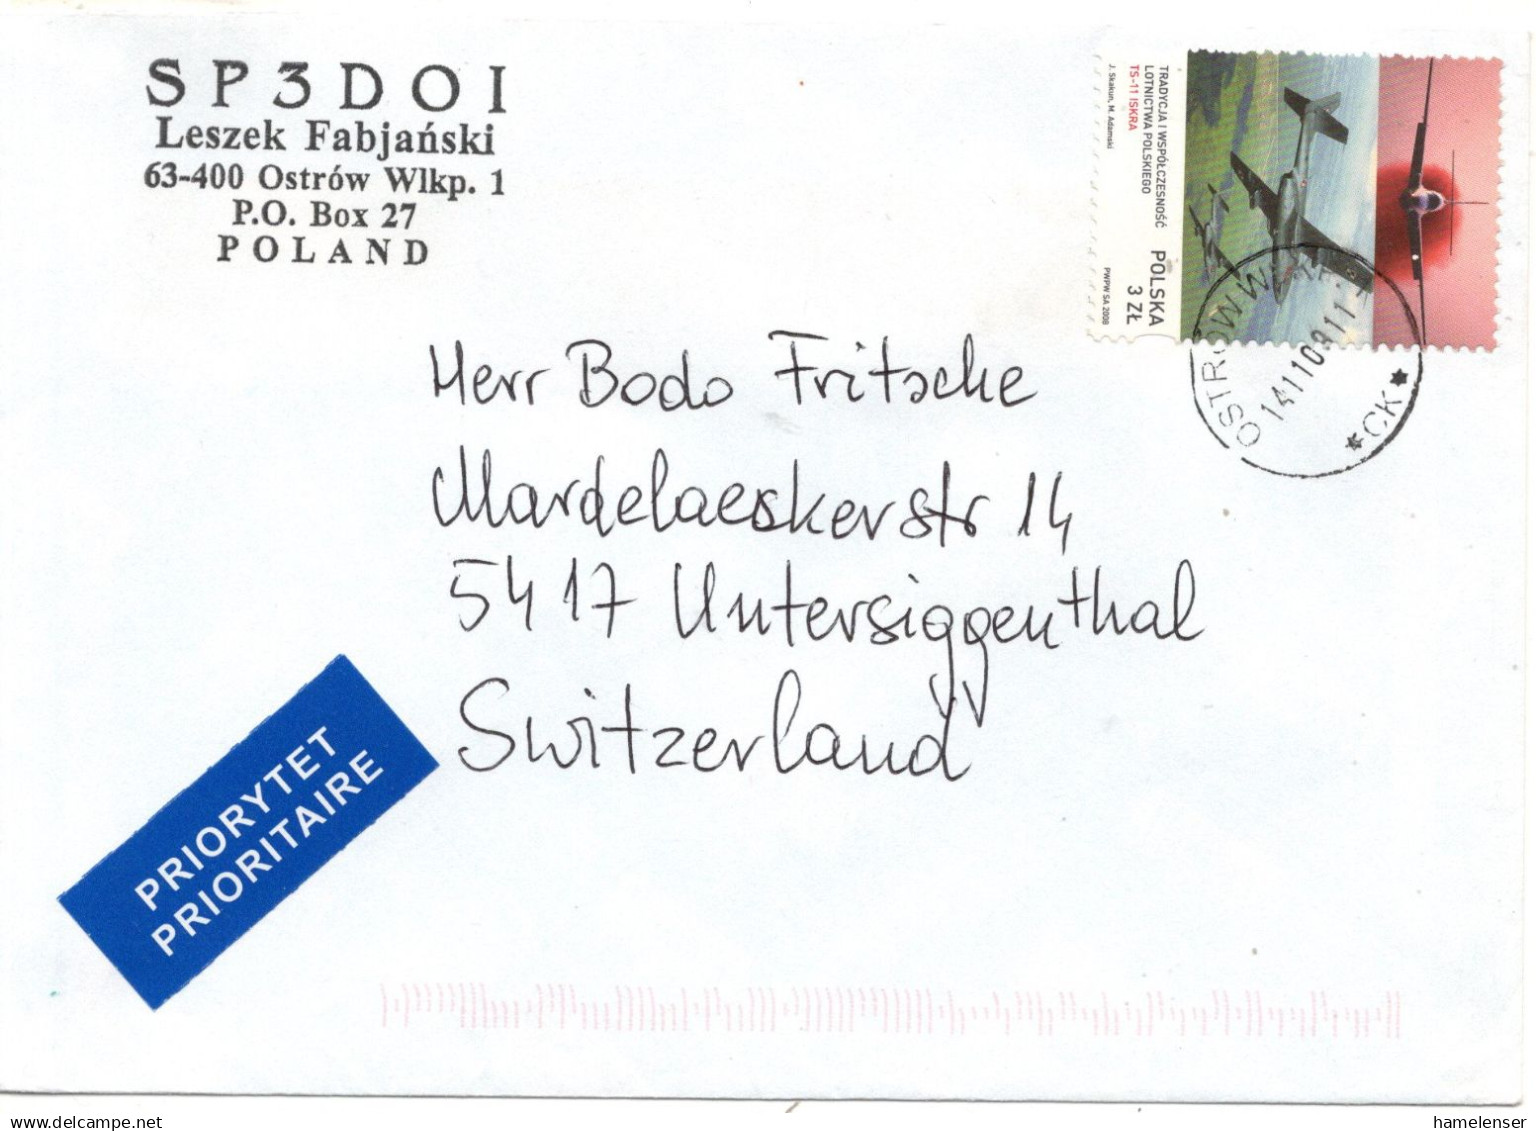 SP3DOI
Leszek Fabjański
63-400 Ostrów Wlkp. 1
P.O. Box 27
POLAND
TRADYCJA I WSPÓŁCZESNOŚĆ
LOTNICTWA POLSKIEGO
TS-11 ISKRA
J. Skakun, M. Adamski
POLSKA
3 ZŁ
PWPW SA 2008
OSTRÓW WLKP. 1
141109 11
*CK*
Herr Bodo Fritsche
Mardelaeskerstr 14
5417 Untersiggenthal
Switzerland
PRIORYTET
PRIORITAIRE
hamelenser